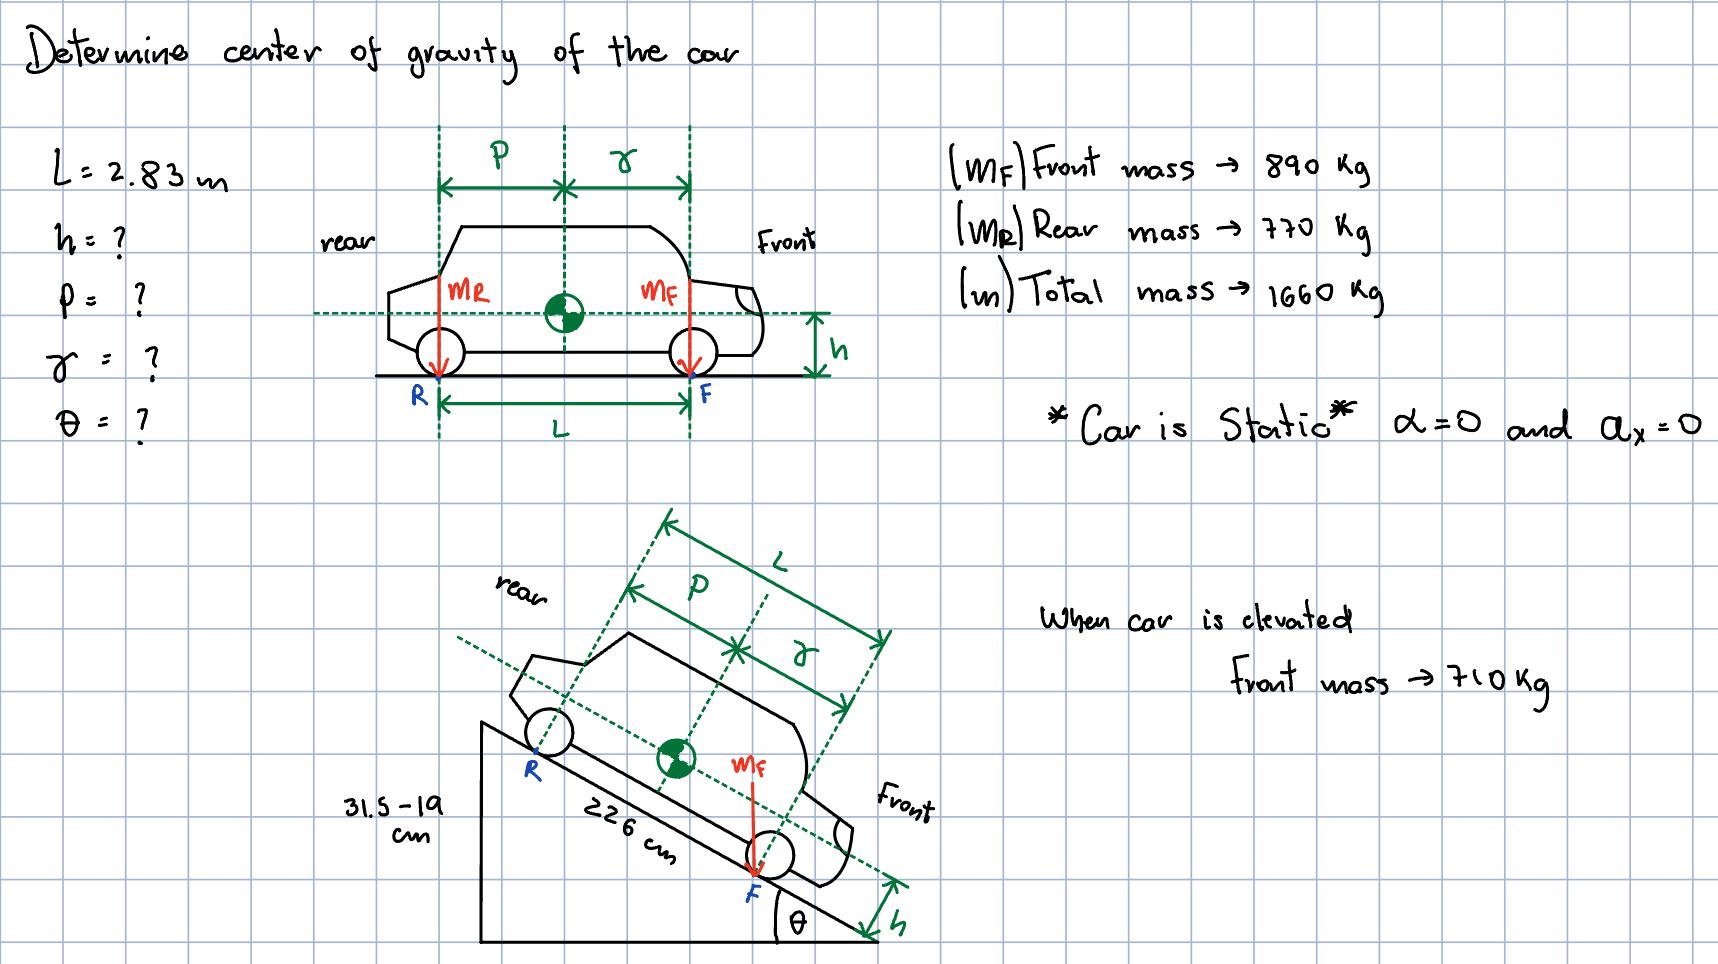 Determine center of gravity of the car
L = 2.83 m
h = ?
P = ?
γ = ?
θ = ?
P γ
rear Front
MR MF
h
R F
L
(MF) Front mass → 890 Kg
(MR) Rear mass → 770 Kg
(m) Total mass → 1660 Kg
*Car is Static* α=0 and ax=0
L
P
γ
rear
MF
R
Front
31.5-19
cm
226 cm
F
θ
h
When car is elevated
Front mass → 710 Kg